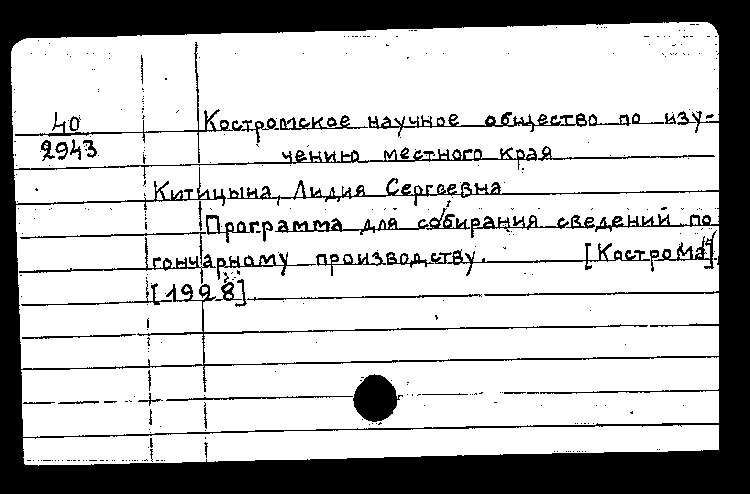 40
2943
Костромское научное общество по изу-
чению местного края
Китицына, Лидия Сергеевна
Программа для собирания сведений по
гончарному производству. [Кострома],
[1928]